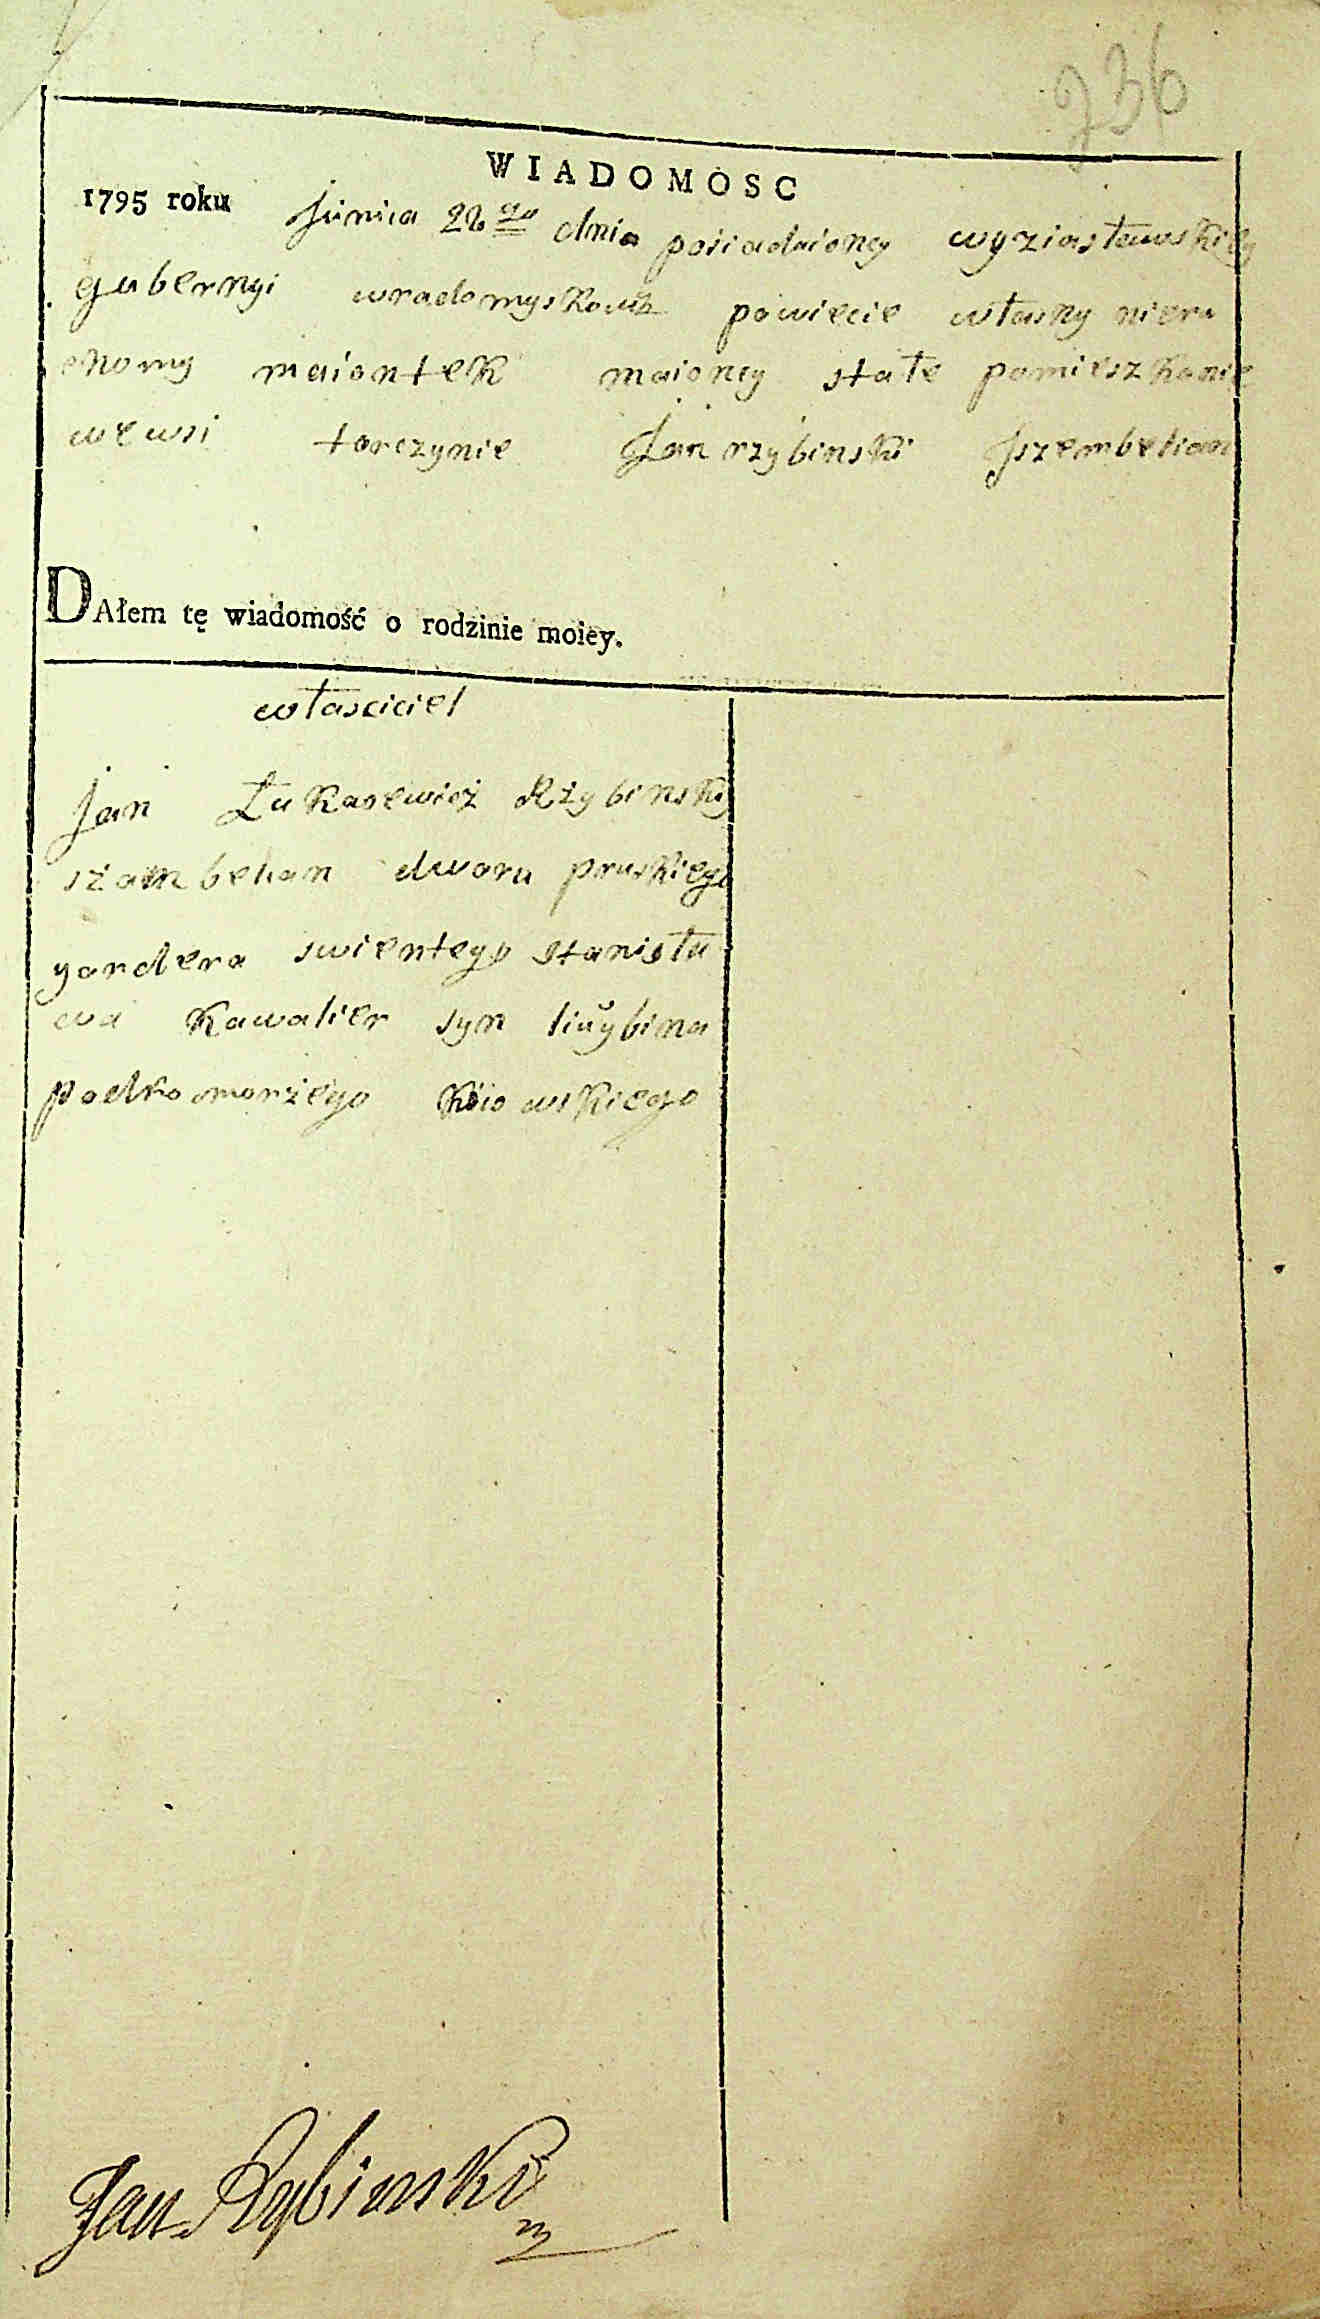 736
WIADOMOSC
1795 roku Junia 22go dnia posiadaioncy wyziasławskiey
gubernyi wradomyskowm powiecie własny nieru
chomy maiontek maioncy stałe pomieszkanie
we wsi torczynie Jan rzybinski szembelian
DAłem tę wiadomość o rodzinie moiey.
własciciel
Jan Łukasewicz Rżybinsky
szambelian dworu pruskiego
yordera swientego stanisła
wa Kawalier syn
podkomorzego kiiowskiego
Jan Rybinski